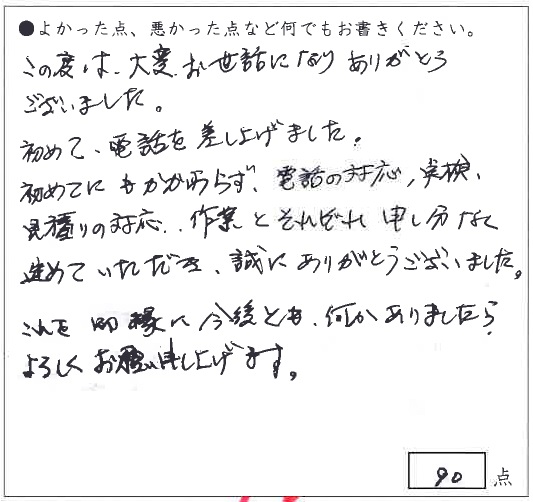 ●よかった点、悪かった点など何でもお書きください。
この度は、大変お世話になり ありがとう
ございました。
初めて、電話を差し上げました。
初めてにもかかわらず、電話の対応、点検、
見積りの対応、作業とそれぞれ申し分なく
進めていただき、誠にありがとうございました。
これを御縁に今後とも、何かありましたら
よろしくお願い申し上げます。
90 点